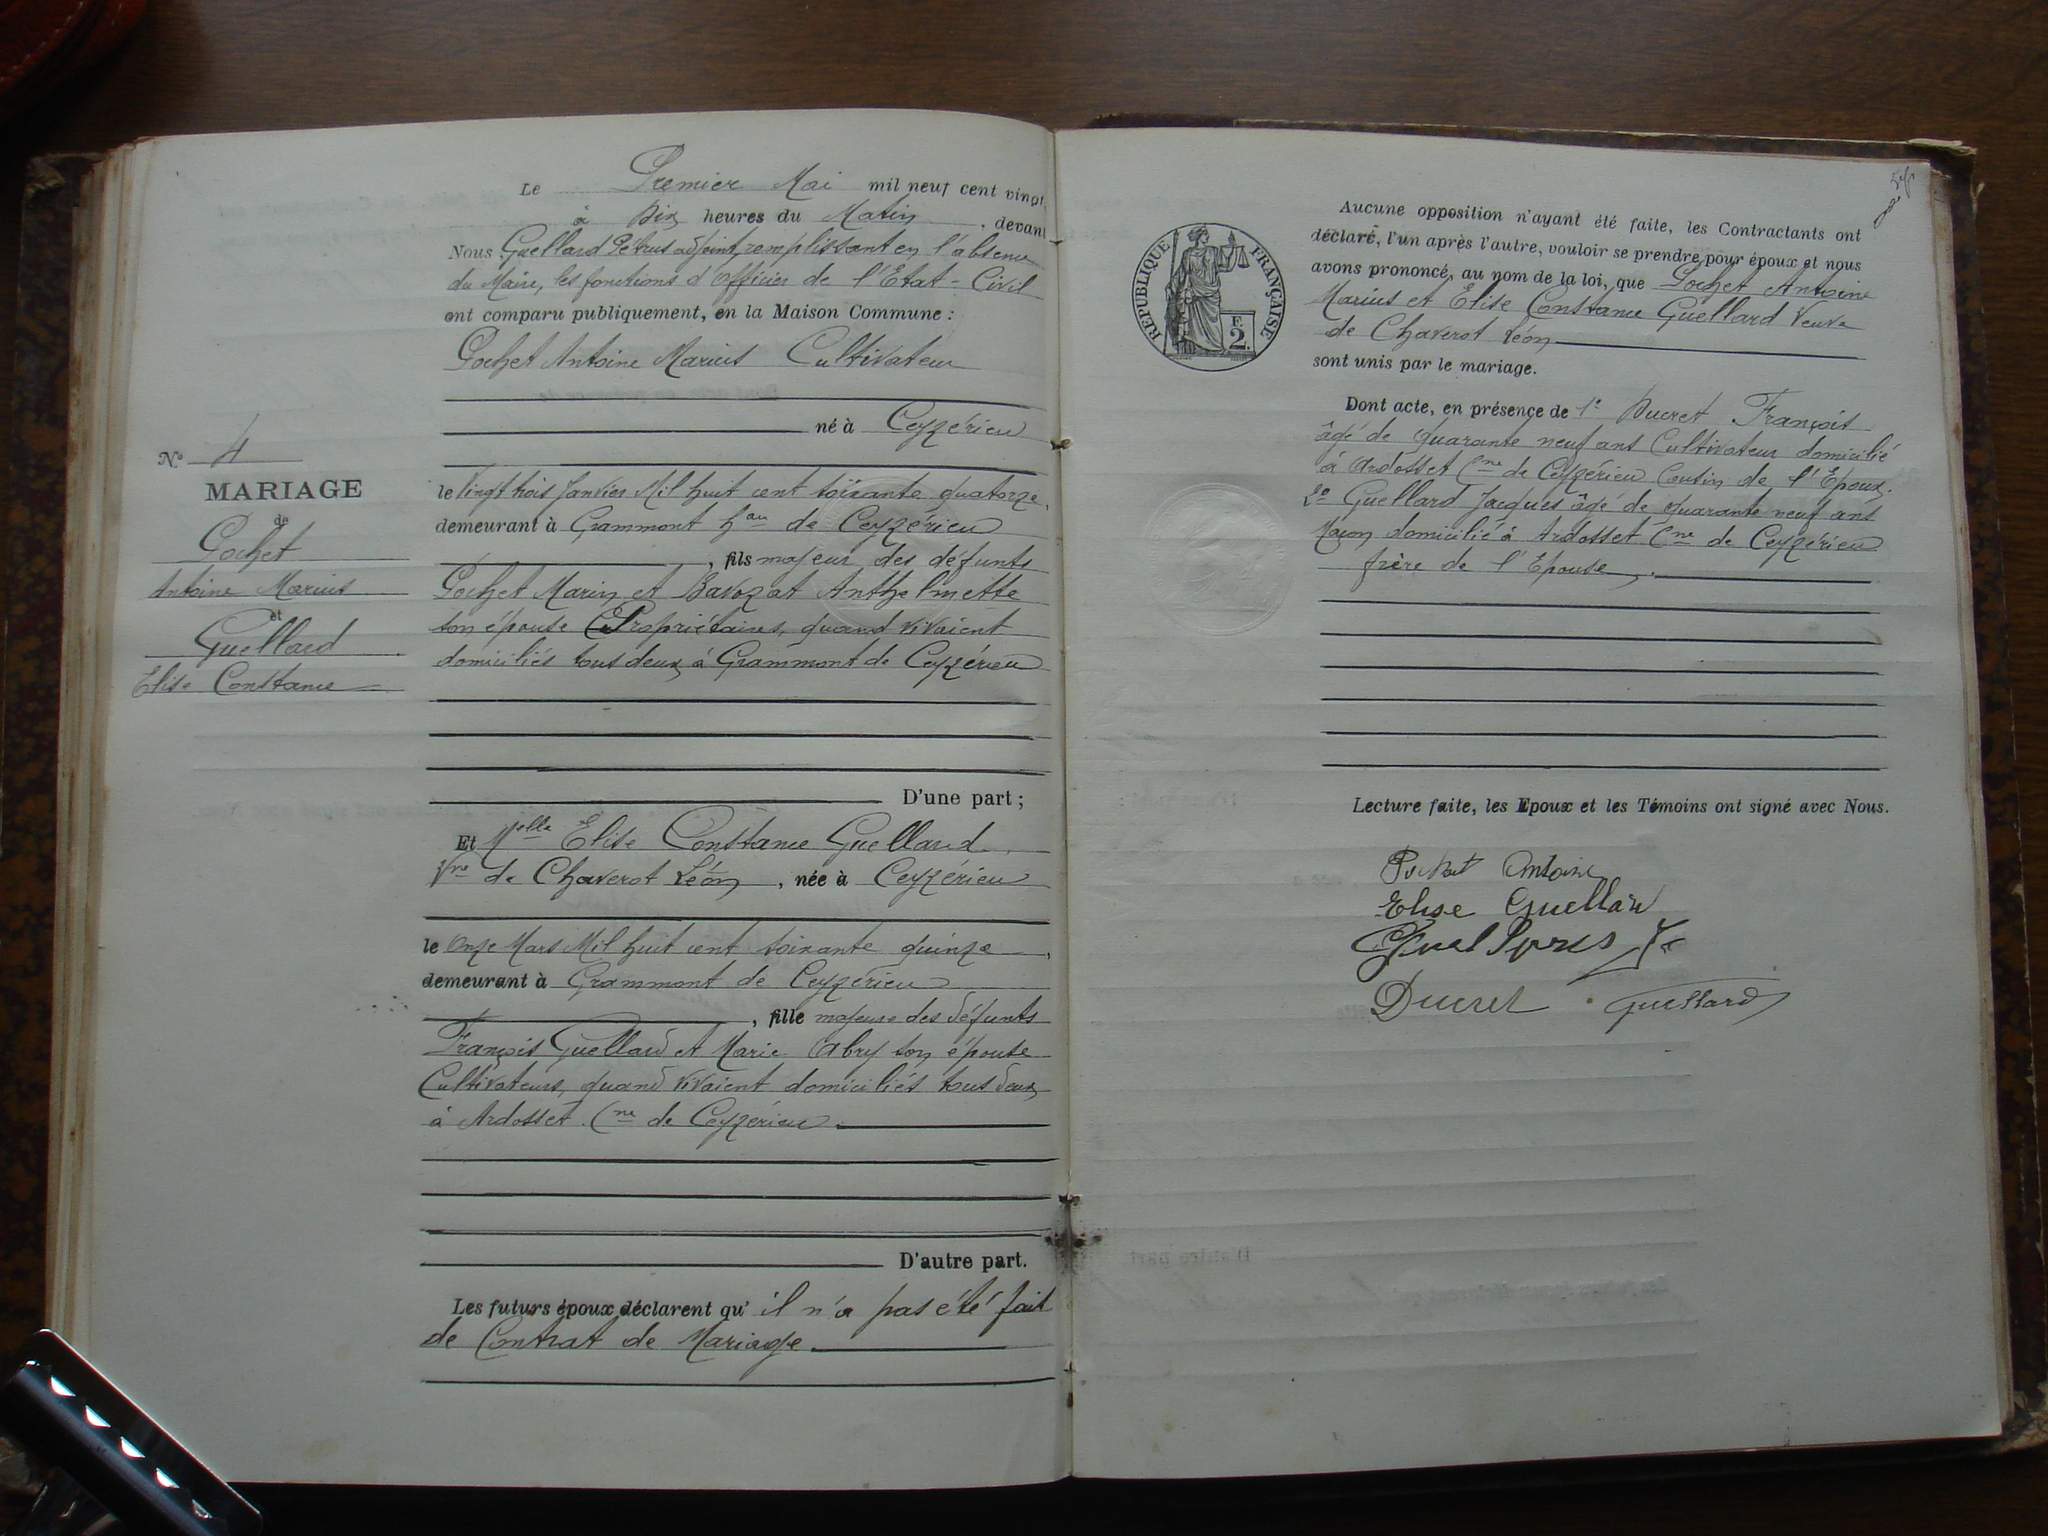 Le Premier Mai mil neuf cent vingt
à Dix heures du Matin, devant
Nous Guellard Petrus adjoint, remplissant en l'absence
du Maire, les fonctions d'Officier de l'Etat-Civil
ont comparu publiquement, en la Maison Commune :
Pochet Antoine Marius Cultivateur
né à Ceyzérieu
le Vingt trois Janvier Mil huit cent soixante quatorze,
demeurant à Grammont hau de Ceyzérieu
, fils majeur des défunts
Pochet Marin et Bavozat Anthelmette
son épouse Propriétaires, quand vivaient
domiciliés tous deux à Grammont de Ceyzérieu
D'une part ;
Et Melle Elise Constance Guellard
Vve de Chaverot Léon, née à Ceyzérieu
le Onze Mars Mil huit cent soixante quinze,
demeurant à Grammont de Ceyzérieu
, fille majeure des défunts
François Guellard et Marie Abry son épouse
Cultivateurs, quand vivaient domiciliés tous deux
à Ardosset Cne de Ceyzérieu.
D'autre part.
Les futurs époux déclarent qu'il n'a pas été fait
de Contrat de Mariage.
No 4
MARIAGE
de
Pochet
Antoine Marius
et
Guellard
Elise Constance
REPUBLIQUE FRANÇAISE
F.
2.
Aucune opposition n'ayant été faite, les Contractants ont
déclaré, l'un après l'autre, vouloir se prendre pour époux et nous
avons prononcé, au nom de la loi, que Pochet Antoine
Marius et Elise Constance Guellard Veuve
de Chaverot Léon
sont unis par le mariage.
Dont acte, en présence de 1° Ducret François
âgé de quarante neuf ans Cultivateur domicilié
à Ardosset Cne de Ceyzérieu Cousin de l'Epoux.
2° Guellard Jacques âgé de quarante neuf ans
Maçon domicilié à Ardosset Cne de Ceyzérieu
frère de l'Epouse.
Lecture faite, les Epoux et les Témoins ont signé avec Nous.
Pochet Antoine
Elise Guellard
Ducret Guellard